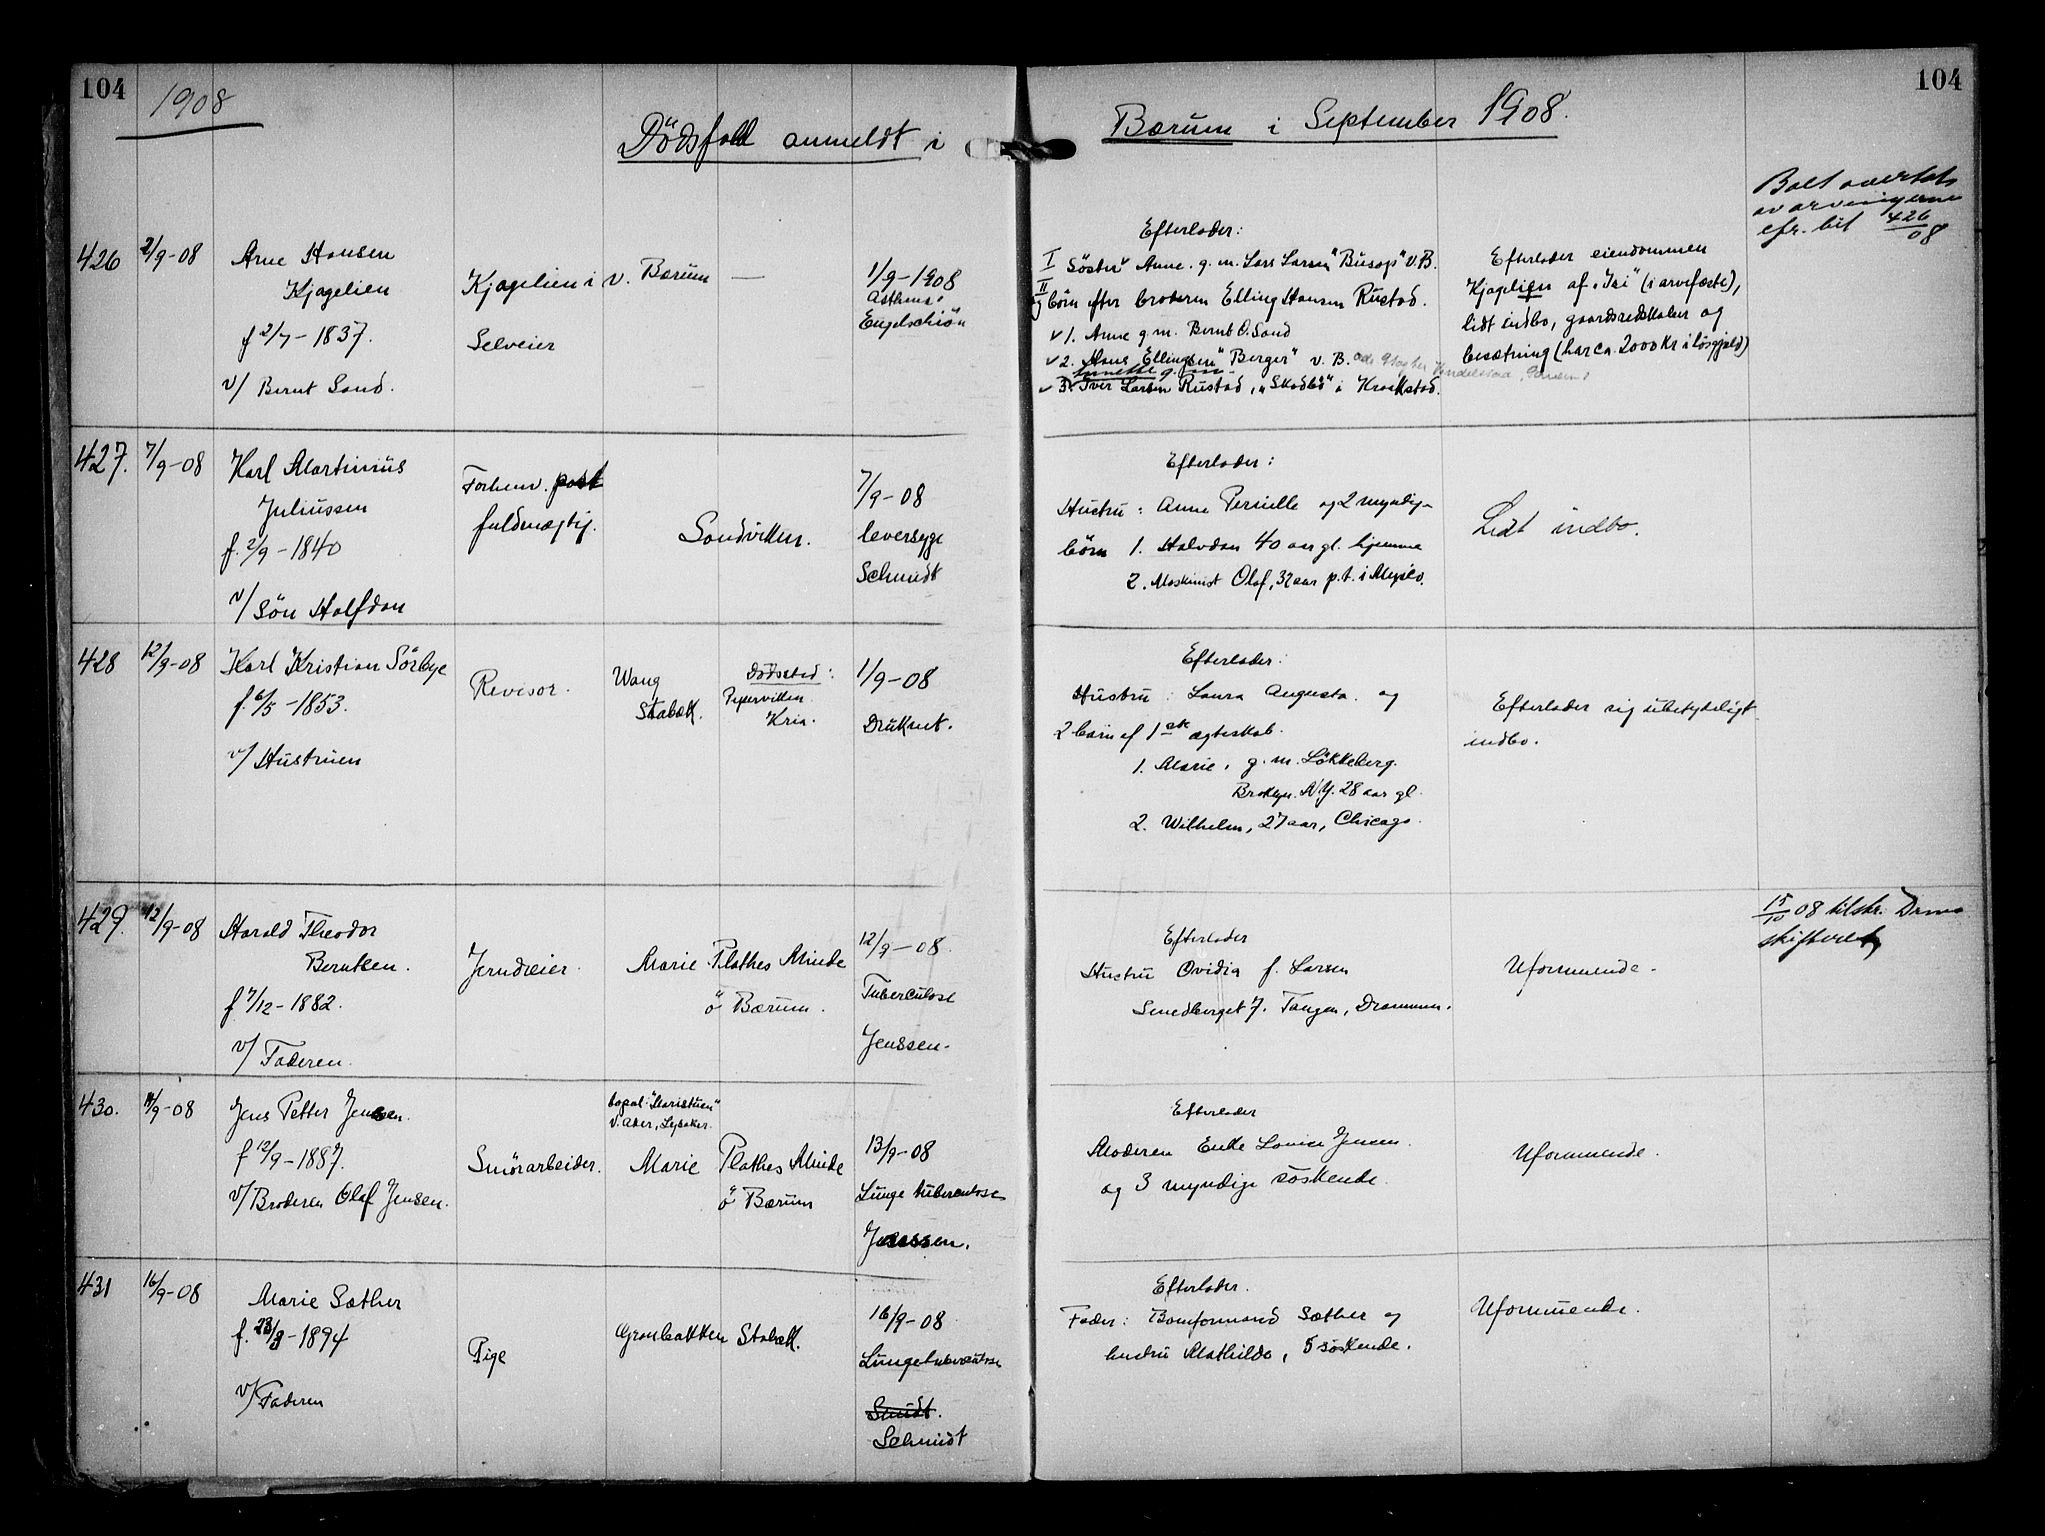 104
1908
Dödsfald anmeldt i Bærum i September 1908.
104
426
2/9-08
Arne Hansen
Kjaglien
f 2/7-1837.
v/ Bernt Sand.
Kjaglien i V. Bærum —
Selveier
1/9-1908
Asthma
Engelschiön
Efterlader:
I Söster Anne. g.m. Lars Larsen "Busop" V.B.
II og börn efter broderen Elling Hansen Rustad.
1. Anne g.m. Bernt O. Sand
2. Hans Ellingsen "Berger" V. B.
3. Iver Larsen Rustad, "Skodbö" i Krokstad.
Efterlader eiendommen
Kjaglien af "Isi" (i arvefæste),
lidt indbo, gaardsredskaber og
besætning (har ca. 2000 kr i løsgjæld)
Boet overtat
av arvingerne
efr. bil 426/08
427.
7/9-08
Karl Martinius
Juliussen
f. 2/9-1840
v/ Sön Halfdan
Forhenv. post
fuldmægtig.
Sandviken.
7/9-08
leversyge
Schmidt
Efterlader:
Hustru: Anne Pernille og 2 myndige
börn 1. Halvdan 40 aar gl. hjemme
2. Maskinist Olaf, 32 aar p.t. i Mexico.
Lidt indbo.
428
12/9-08
Karl Kristian Sörbye
f. 6/5-1853.
v/ Hustruen
Revisor.
Wang
Stabæk.
Dödssted:
Pipervikken
Kria.
1/9-08
Druknet.
Efterlader:
Hustru: Laura Augusta. og
2 börn af 1ste ægteskab.
1. Marie, g.m. Lökkeberg.
Broklyn. N.Y. 28 aar gl.
2. Wilhelm, 27 aar, Chicago.
Efterlader sig ubetydeligt
indbo.
429.
12/9-08
Harald Theodor
Berntsen.
f 7/12-1882.
v/ Faderen.
Jerndreier.
Marie Plathes Minde
ö Bærum.
12/9-08.
Tuberculose
Jenssen.
Efterlader
Hustru Ovidia f. Larsen
Smedberget 7. Tangen, Drammen.
Uformuende.
15/10 08 tilskr. Drms
skifteret
430.
14/9-08
Jens Petter Jensen.
f 12/9-1887.
v/ Broderen Olaf Jensen.
Smörarbeider.
bopæl: "Maristuen"
V. Aker, Lysaker.
Marie Plathes Minde
ö Bærum
13/9-08
Lunge tuberculose
Jenssen.
Efterlader
Moderen Enke Lovise Jensen.
og 3 myndige söskende.
Uformuende.
431
16/9-08
Marie Sæther
f. 23/3-1894
v/ Faderen
Pige
Granbakken Stabæk.
16/9-08
Lungetuberculose
Smidt.
Schmidt
Efterlader.
Fader: Bomformand Sæther og
hustru Mathilde, 5 söskende.
Uformuende.